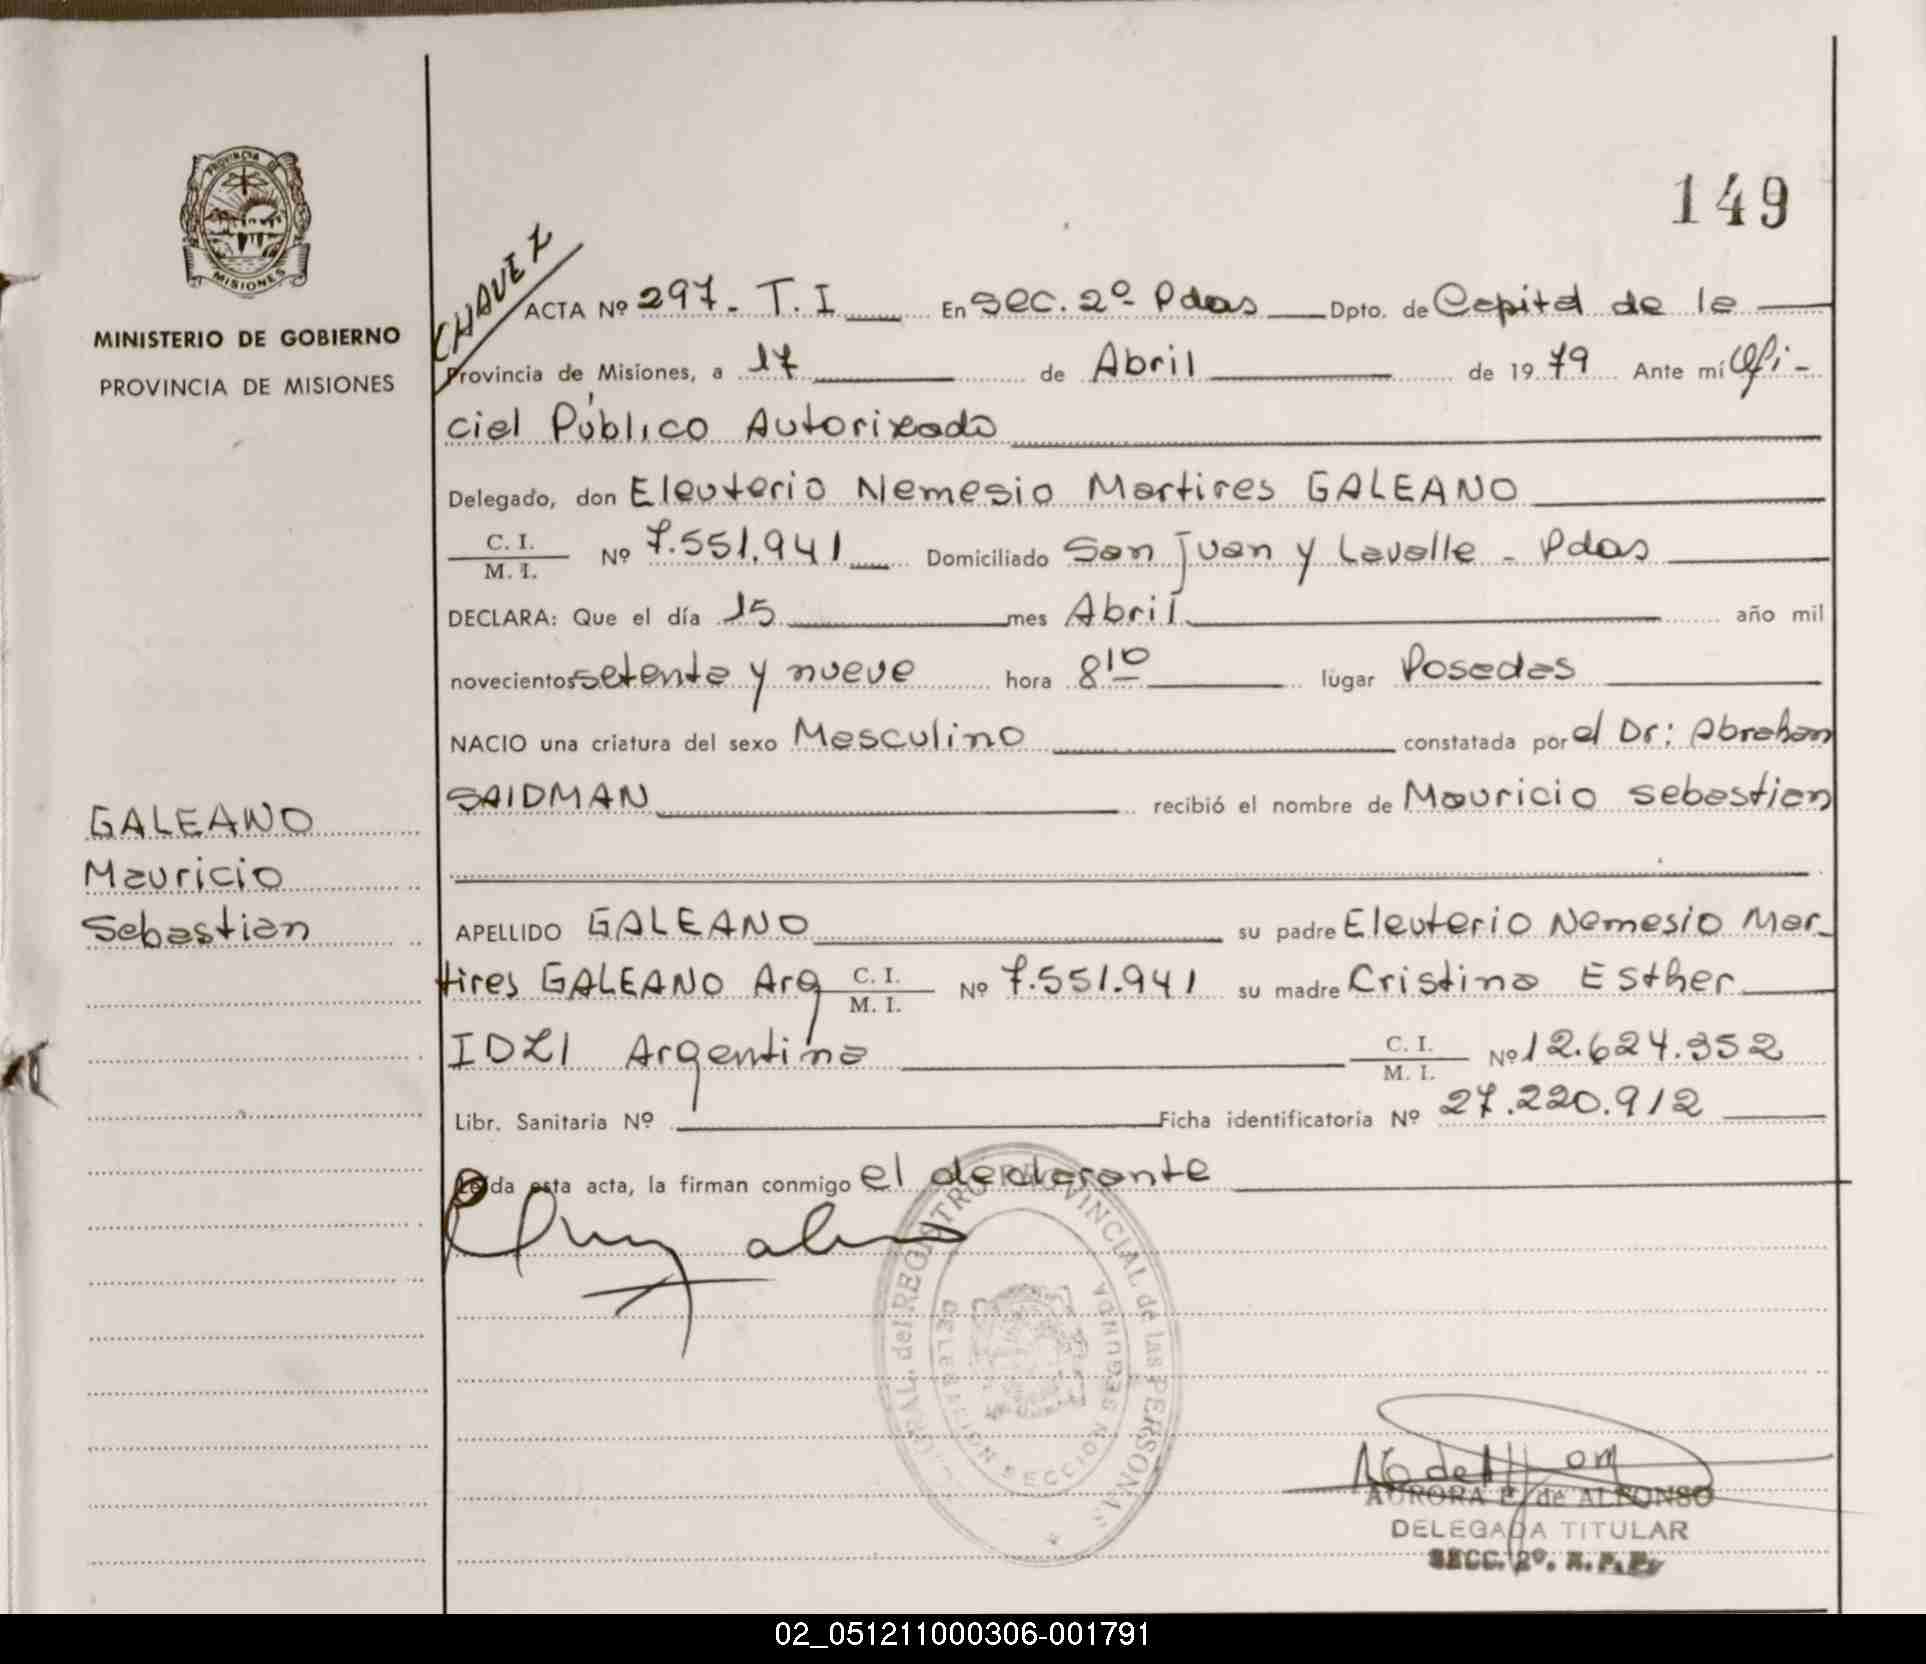 PROVINCIA DE
MISIONES
MINISTERIO DE GOBIERNO
PROVINCIA DE MISIONES
GALEANO
Mauricio
Sebastian
149
CHAVEZ
ACTA Nº 297. T. I En Sec. 2º Pdas Dpto. de Capital de la
Provincia de Misiones, a 17 de Abril de 1979 Ante mí Ofi-
cial Público Autorizado
Delegado, don Eleuterio Nemesio Martires GALEANO
C. I.
M. I. Nº 7.551.941 Domiciliado San Juan y Lavalle - Pdas
DECLARA: Que el día 15 mes Abril año mil
novecientos setenta y nueve hora 8 10 lugar Posadas
NACIO una criatura del sexo Masculino constatada por el Dr: Abrahan
SAIDMAN recibió el nombre de Mauricio Sebastian
APELLIDO GALEANO su padre Eleuterio Nemesio Mar-
tires GALEANO Arg C. I. M. I. Nº 7.551.941 su madre Cristina Esther
IDZI Argentina C. I. M. I. Nº 12.624.352
Libr. Sanitaria Nº Ficha identificatoria Nº 27.220.912
Leida esta acta, la firman conmigo el declarante
del REGISTRO PROVINCIAL de las PERSONAS
DELEGACION SECCION SEGUNDA
AURORA E. de ALFONSO
DELEGADA TITULAR
SECC. 2º. R. P. P.
02_051211000306-001791